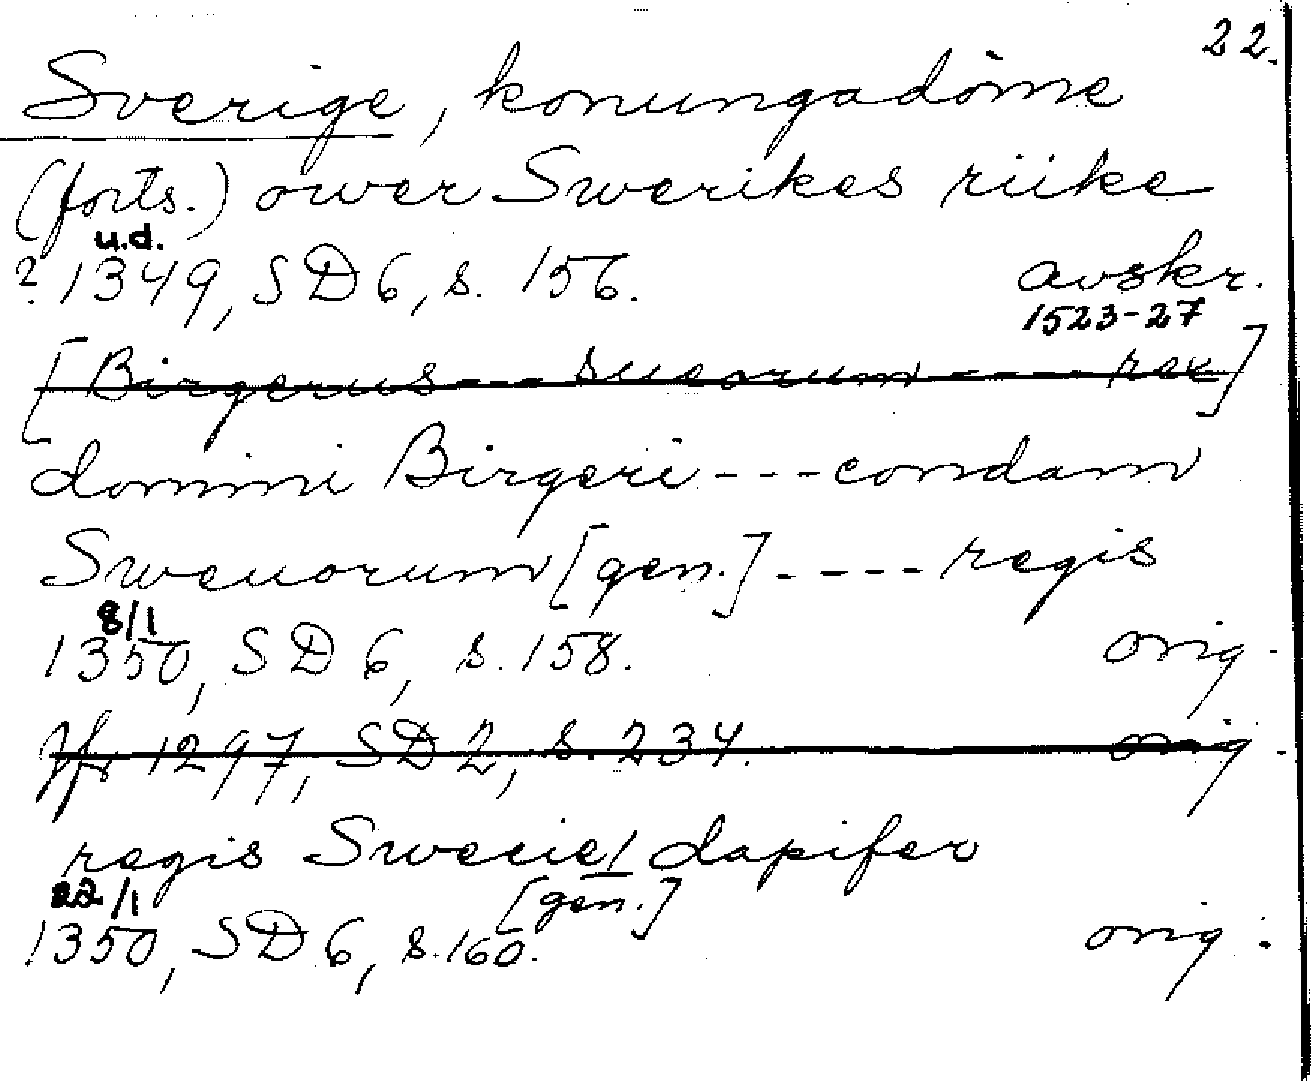 22.
Sverige, konungadöme
(forts.) ower Swerikes riike
u.d.
? 1349, SD 6, s. 156. avskr.
1523-27
[Birgerus --- sueorum ---- rex]
domini Birgeri --- condam
Sweuorum [gen.] ---- regis
8/1
1350, SD 6, s. 158. orig.
Jfr 1297, SD 2, s. 234. orig.
regis Swecie/ dapifer
22/1 [gen.]
1350, SD 6, s. 160. orig.